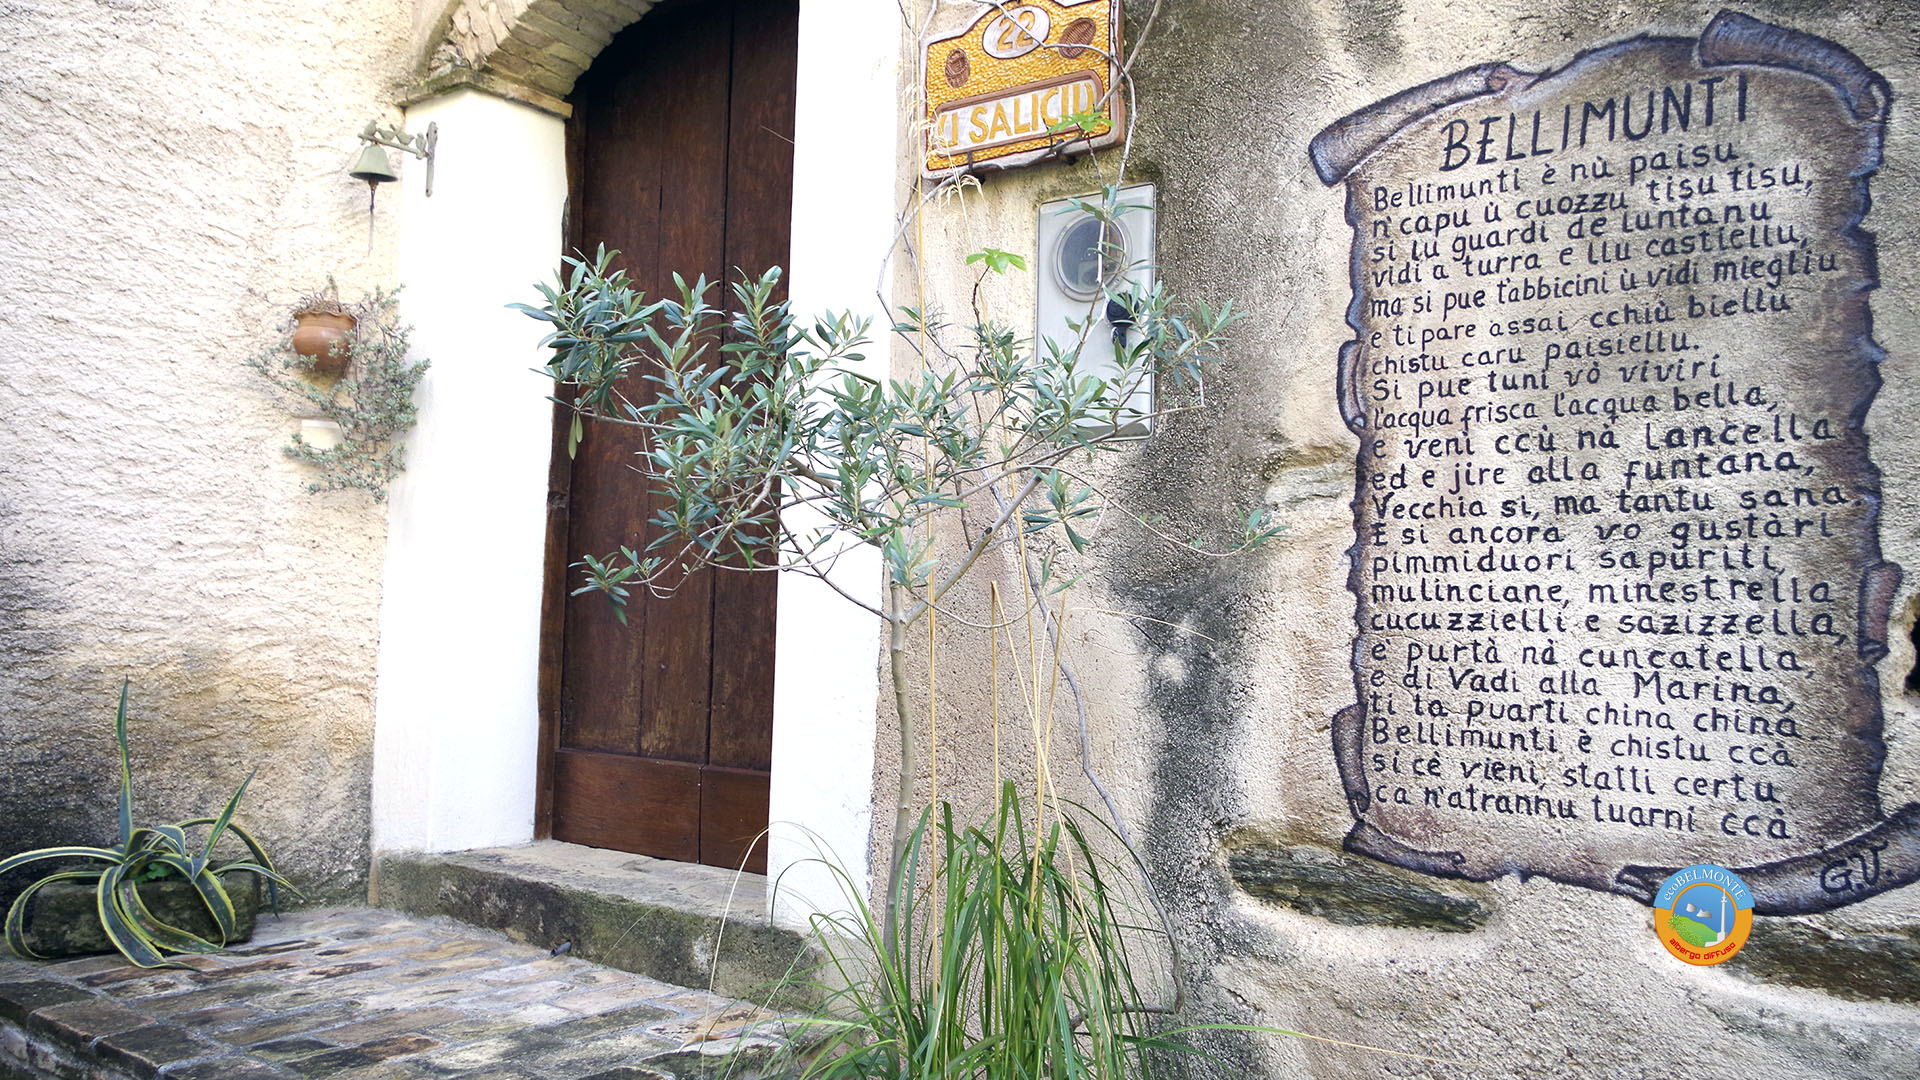 22
LI SALICI
BELLIMUNTI
Bellimunti è nù paisu
n'capu ù cuozzu tisu tisu,
si lu guardi de luntanu
vidi a turra e llu castiellu,
ma si pue t'abbicini ù vidi miegliu
e ti pare assai cchiù biellu
chistu caru paisiellu.
Si pue tuni vò viviri
l'acqua frisca l'acqua bella,
e veni ccù nà lancella
ed e jire alla funtana,
Vecchia si, ma tantu sana.
E si ancora vo gustàri
pimmiduori sapuriti,
mulinciane, minestrella
cucuzzielli e sazizzella,
e purtà nà cuncatella,
e di Vadi alla Marina,
ti la puarti china china.
Bellimunti è chistu ccà
si cè vieni, statti certu
ca n'atrannu tuarni ccà
G.V.
ecoBELMONTE
albergo diffuso